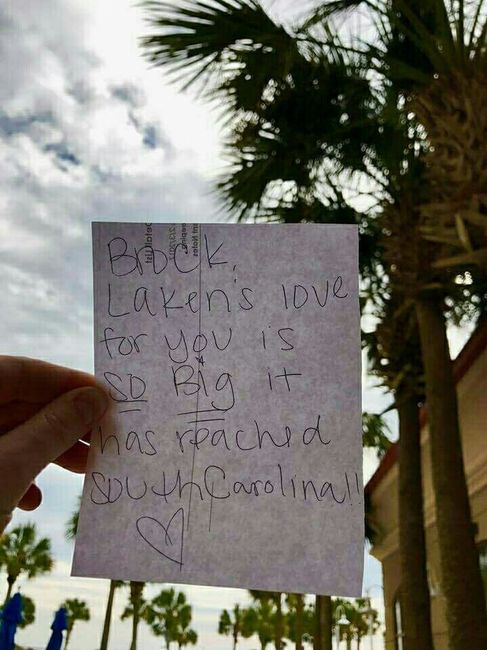 Brock,
Laken's love
for you is
so Big it
has reached
South Carolina!!